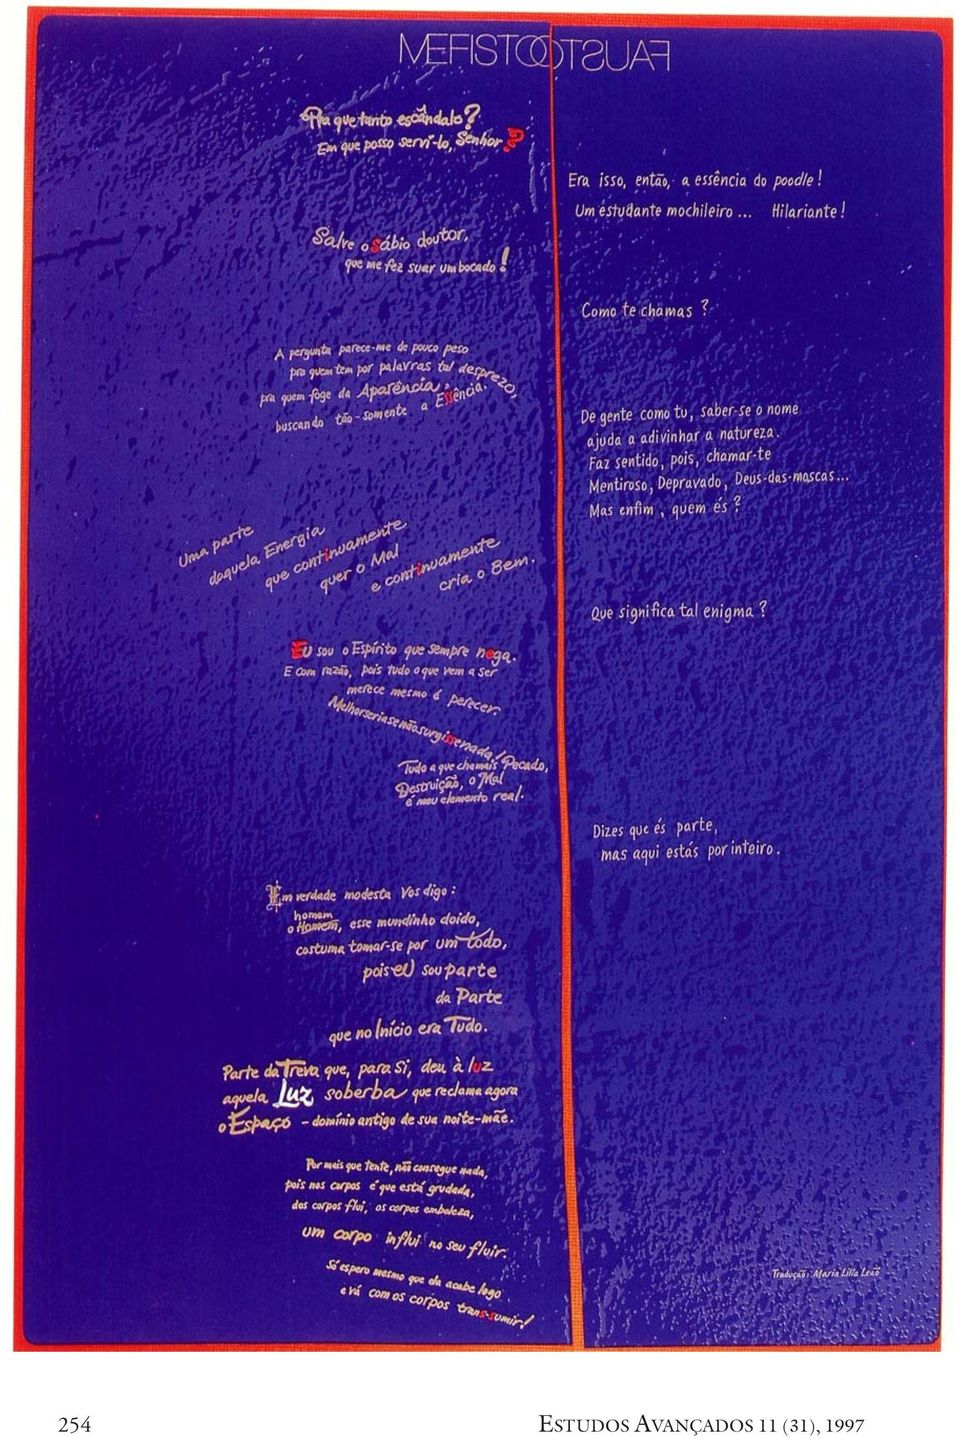 MEFISTO OTSUAF
Pra que tanto escândalo?
Em que posso servi-lo, Senhor?
Era isso, então, a essência do poodle!
Um estudante mochileiro... Hilariante!
Salve o sábio doutor,
que me fez suar um bocado!
Como te chamas?
A pergunta parece-me de pouco peso
pra quem tem por palavras tal desprezo,
pra quem foge da Aparência,
buscando tão-somente a Essência.
De gente como tu, saber-se o nome
ajuda a adivinhar a natureza.
Faz sentido, pois, chamar-te
Mentiroso, Depravado, Deus-das-moscas...
Mas enfim, quem és?
Uma parte
daquela Energia
que continuamente
quer o Mal
e continuamente
cria o Bem.
Que significa tal enigma?
EU sou o Espírito que sempre nega.
E com razão, pois tudo o que vem a ser
merece mesmo é perecer.
Melhor seria se não surgisse nada!
Tudo a que chamais Pecado,
Destruição, o Mal
é meu elemento real.
Dizes que és parte,
mas aqui estás por inteiro.
Em verdade modesta Vos digo:
homem
o Homem, esse mundinho doido,
costuma tomar-se por um todo,
pois eU sou parte
da Parte
que no Início era Tudo.
Parte da Treva que, para si, deu à luz
aquela Luz soberba que reclama agora
o Espaço - domínio antigo de sua noite-mãe.
Por mais que tente, não consegue nada,
pois nos corpos é que está grudada,
dos corpos flui, os corpos embeleza,
um corpo influi no seu fluir.
Só espero mesmo que ela acabe logo
e vá com os corpos trans-sumir!
Tradução: Maria Lilia Leão
254 ESTUDOS AVANÇADOS 11 (31), 1997